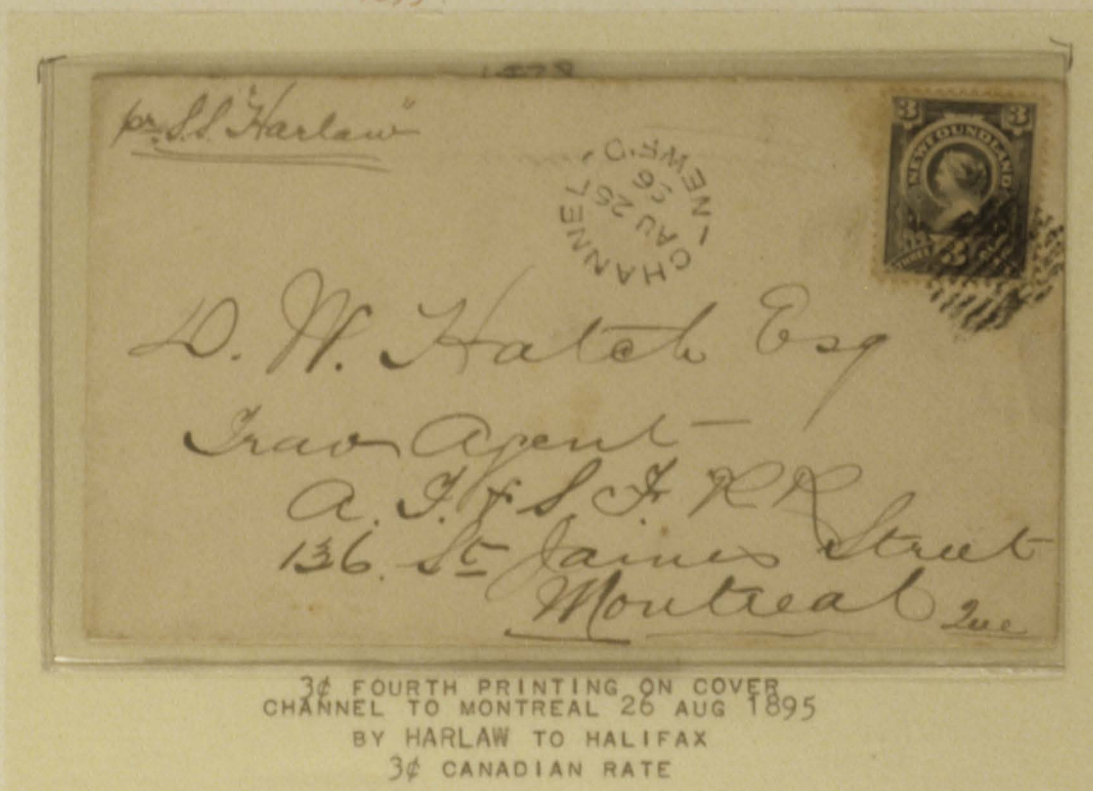 pr. S.S. "Harlaw"
CHANNEL
NEWF'D.
AU
95
3 3
NEWFOUNDLAND
THREE 3
D. W. Hatch Esq
Trav Agent
A. T. & S. F. RR
136. St James Street
Montreal Que
3¢ FOURTH PRINTING ON COVER
CHANNEL TO MONTREAL 26 AUG 1895
BY HARLAW TO HALIFAX
3¢ CANADIAN RATE